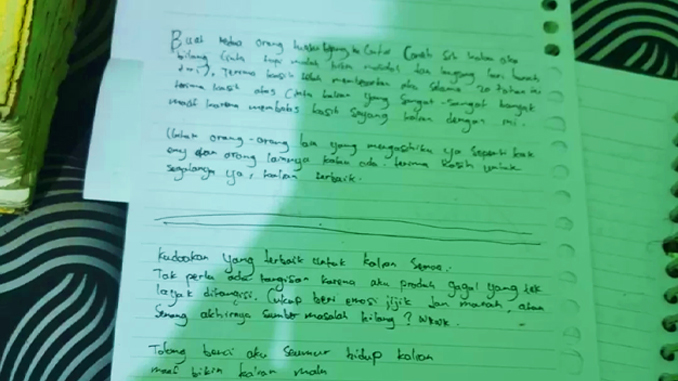 Buat kedua orang tuaku yang ku cintai (aneh sih kalau aku
bilang cinta tapi malah bikin masalah dan
), terima kasih telah aku selama 20 tahun ini
terima kasih atas cinta kalian yang sangat-sangat banyak
maaf karena membalas kasih sayang kalian dengan ini.
Untuk orang-orang lain yang mengasihiku ya seperti kak
emy dan orang lainnya kalau ada. terima kasih untuk
segalanya ya, kalian terbaik.
Kudoakan yang terbaik untuk kalian semua.
Tak perlu ada tangisan karena aku produk gagal yang tak
layak ditangisi. Cukup beri emosi jijik dan marah, atau
senang akhirnya sumber masalah hilang? Wkwk.
Tolong benci aku seumur hidup kalian
maaf bikin kalian malu